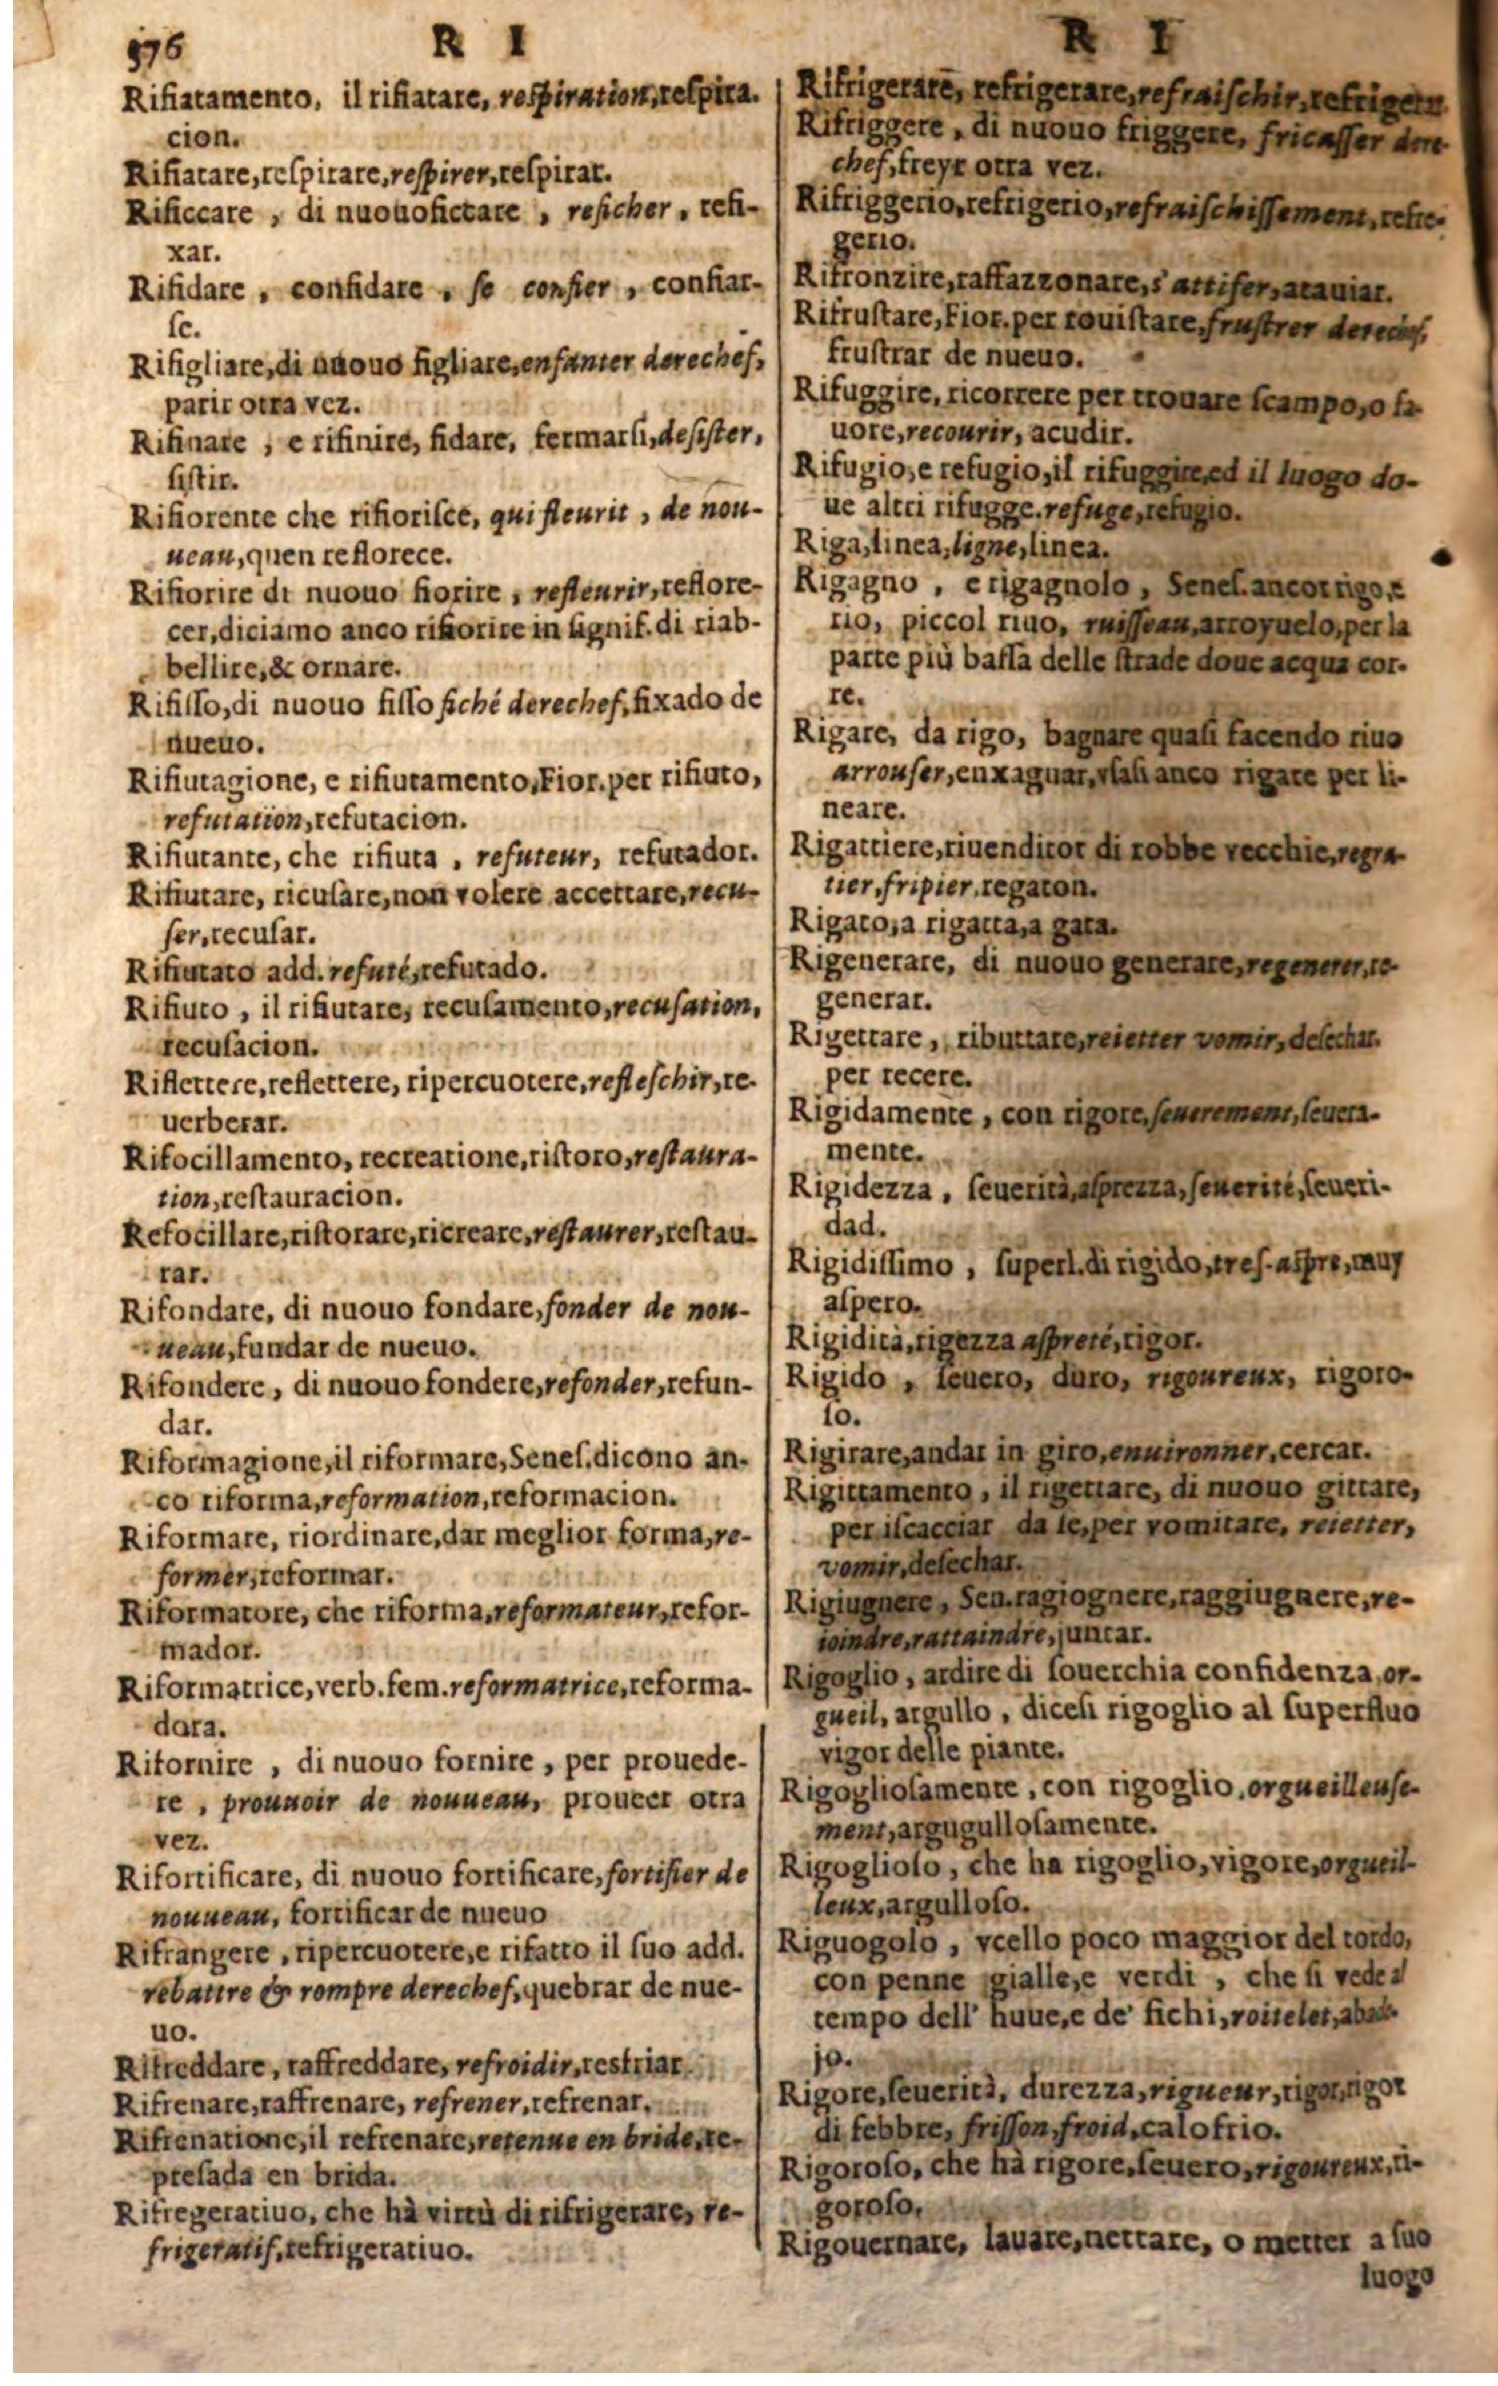 576 R I
Rifiatamento, il rifiatare, respiration, respira-
cion.
Rifiatare, reſpirare, reſpirer, reſpirar.
Rificcare , di nuouoficcare , reficher , refi-
xar.
Rifidare , confidare , ſe confier , confiar-
ſe.
Rifigliare, di nuouo figliare, enfanter derechef,
parir otra vez.
Rifinare , e rifinire, fidare, fermarſi, deſiſter,
ſiſtir.
Rifiorente che rifioriſce, qui fleurit , de nou-
ueau, quen reflorece.
Rifiorire di nuouo fiorire , refleurir, reflore-
cer, diciamo anco rifiorire in ſignif. di riab-
bellire, & ornare.
Rifiſſo, di nuouo fiſſo fiché derechef, fixado de
nueuo.
Rifiutagione, e rifiutamento, Fior. per rifiuto,
refutation, refutacion.
Rifiutante, che rifiuta , refuteur, refutador.
Rifiutare, ricuſare, non volere accettare, recu-
ſer, recuſar.
Rifiutato add. refuté, refutado.
Rifiuto , il rifiutare, recuſamento, recuſation,
recuſacion.
Riflettere, reflettere, ripercuotere, refleſchir, re-
uerberar.
Rifocillamento, recreatione, riſtoro, reſtaura-
tion, reſtauracion.
Refocillare, riſtorare, ricreare, reſtaurer, reſtau-
rar.
Rifondare, di nuouo fondare, fonder de nou-
ueau, fundar de nueuo.
Rifondere , di nuouo fondere, refonder, refun-
dar.
Riformagione, il riformare, Seneſ. dicono an-
co riforma, reformation, reformacion.
Riformare, riordinare, dar meglior forma, re-
former, reformar.
Riformatore, che riforma, reformateur, refor-
mador.
Riformatrice, verb. fem. reformatrice, reforma-
dora.
Rifornire , di nuouo fornire , per prouede-
re , prouuoir de nouueau, proueer otra
vez.
Rifortificare, di nuouo fortificare, fortifier de
nouueau, fortificar de nueuo
Rifrangere , ripercuotere, e rifatto il ſuo add.
rebattre & rompre derechef, quebrar de nue-
uo.
Rifreddare , raffreddare, refroidir, resfriar
Rifrenare, raffrenare, refrener, refrenar.
Rifrenatione, il refrenare, retenue en bride, re-
preſada en brida.
Rifregeratiuo, che hà virtù di rifrigerare, re-
frigeratif, refrigeratiuo.
R I
Rifrigerare, refrigerare, refraiſchir, refrigerar.
Rifriggere , di nuouo friggere, fricaſſer dere-
chef, freyr otra vez.
Rifriggerio, refrigerio, refraiſchiſſement, refre-
gerio.
Rifronzire, raffazzonare, s'attifer, atauiar.
Rifruſtare, Fior. per rouiſtare, fruſtrer derechef,
fruſtrar de nueuo.
Rifuggire, ricorrere per trouare ſcampo, o fa-
uore, recourir, acudir.
Rifugio, e refugio, il rifuggire, ed il luogo do-
ue altri rifugge. refuge, refugio.
Riga, linea, ligne, linea.
Rigagno , e rigagnolo , Seneſ. ancor rigo, e
rio, piccol riuo, ruiſſeau, arroyuelo, per la
parte più baſſa delle ſtrade doue acqua cor-
re.
Rigare, da rigo, bagnare quaſi facendo riuo
arrouſer, enxaguar, vſaſi anco rigare per li-
neare.
Rigattiere, riuenditor di robbe vecchie, regra-
tier, fripier, regaton.
Rigato, a rigatta, a gata.
Rigenerare, di nuouo generare, regenerer, re-
generar.
Rigettare , ributtare, reietter vomir, deſechar.
per recere.
Rigidamente , con rigore, ſeuerement, ſeuera-
mente.
Rigidezza , ſeuerità, aſprezza, ſeuerité, ſeueri-
dad.
Rigidiſſimo , ſuperl. di rigido, treſ-aſpre, muy
aſpero.
Rigidità, rigezza aſpreté, rigor.
Rigido , ſeuero, duro, rigoureux, rigoro-
ſo.
Rigirare, andar in giro, enuironner, cercar.
Rigittamento , il rigettare, di nuouo gittare,
per iſcacciar da ſe, per vomitare, reietter,
vomir, deſechar.
Rigiugnere , Sen. ragiognere, raggiugnere, re-
ioindre, rattaindre, juntar.
Rigoglio , ardire di ſouerchia confidenza, or-
gueil, argullo , diceſi rigoglio al ſuperfluo
vigor delle piante.
Rigoglioſamente , con rigoglio, orgueilleuſe-
ment, argugulloſamente.
Rigoglioſo , che ha rigoglio, vigore, orgueil-
leux, argulloſo.
Riguogolo , vcello poco maggior del tordo,
con penne gialle, e verdi , che ſi vede al
tempo dell' huue, e de' fichi, roitelet, abade-
jo.
Rigore, ſeuerità, durezza, rigueur, rigor, rigor
di febbre, friſſon, froid, calofrio.
Rigoroſo, che hà rigore, ſeuero, rigoureux, ri-
goroſo.
Rigouernare, lauare, nettare, o metter a ſuo
luogo